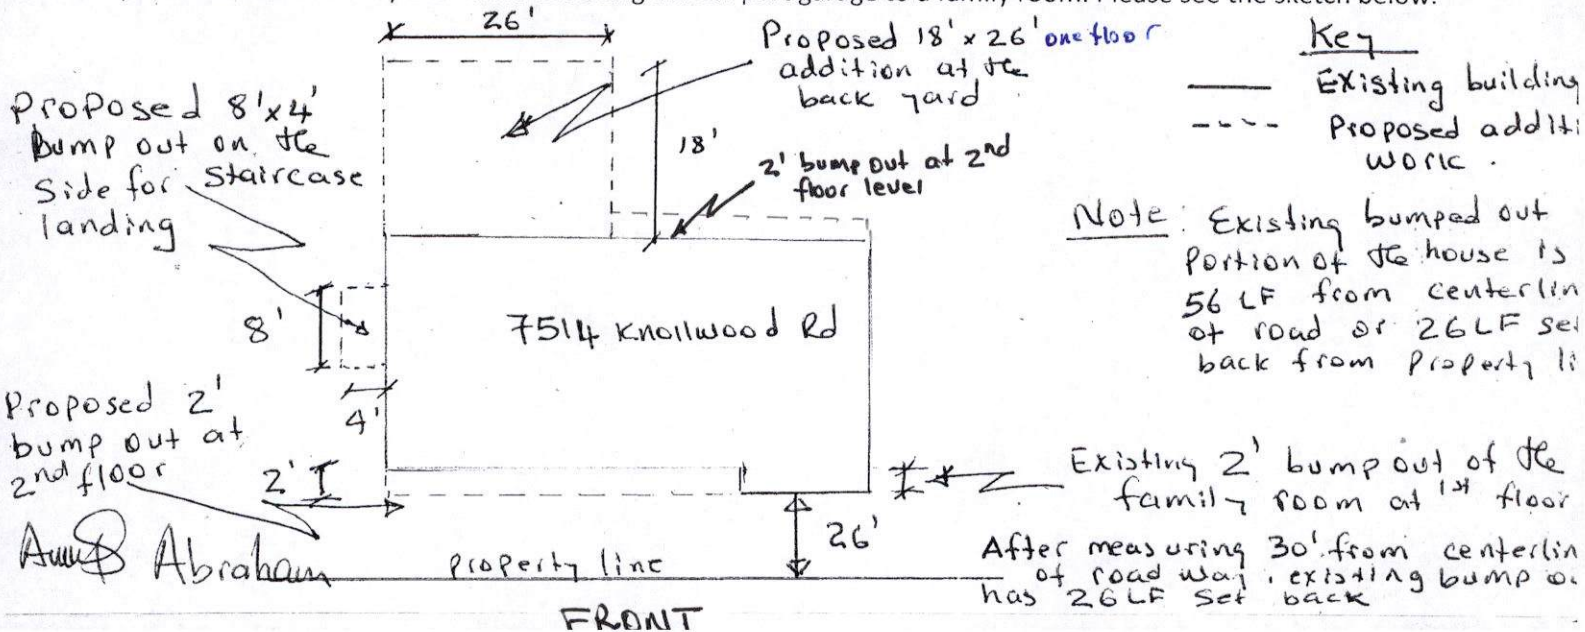 to a family room. Please see the sketch below.
26'
Proposed 18' x 26' one floor
addition at the
back yard
Key
Existing building
Proposed additi
work.
Proposed 8'x4'
Bump out on the
Side for Staircase
landing
18'
2' bump out at 2nd
floor level
Note: Existing bumped out
Portion of the house is
56 LF from centerlin
of road or 26LF set
back from Property li
8'
7514 Knollwood Rd
4'
Proposed 2'
bump out at
2nd floor
2'
Existing 2' bump out of the
family room at 1st floor
26'
After measuring 30' from centerlin
of road way, existing bump o
has 26 LF Set back
Abraham
Property line
FRONT